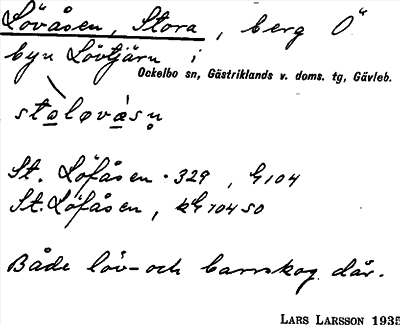 Lövåsen, Stora, berg O"
byn Lövtjärn i
Ockelbo sn, Gästriklands v. doms. tg, Gävleb.
St. Löfåsen · 329, G 104
St. Löfåsen, kG 104 SO
Både löv- och barrskog där.
LARS LARSSON 1935